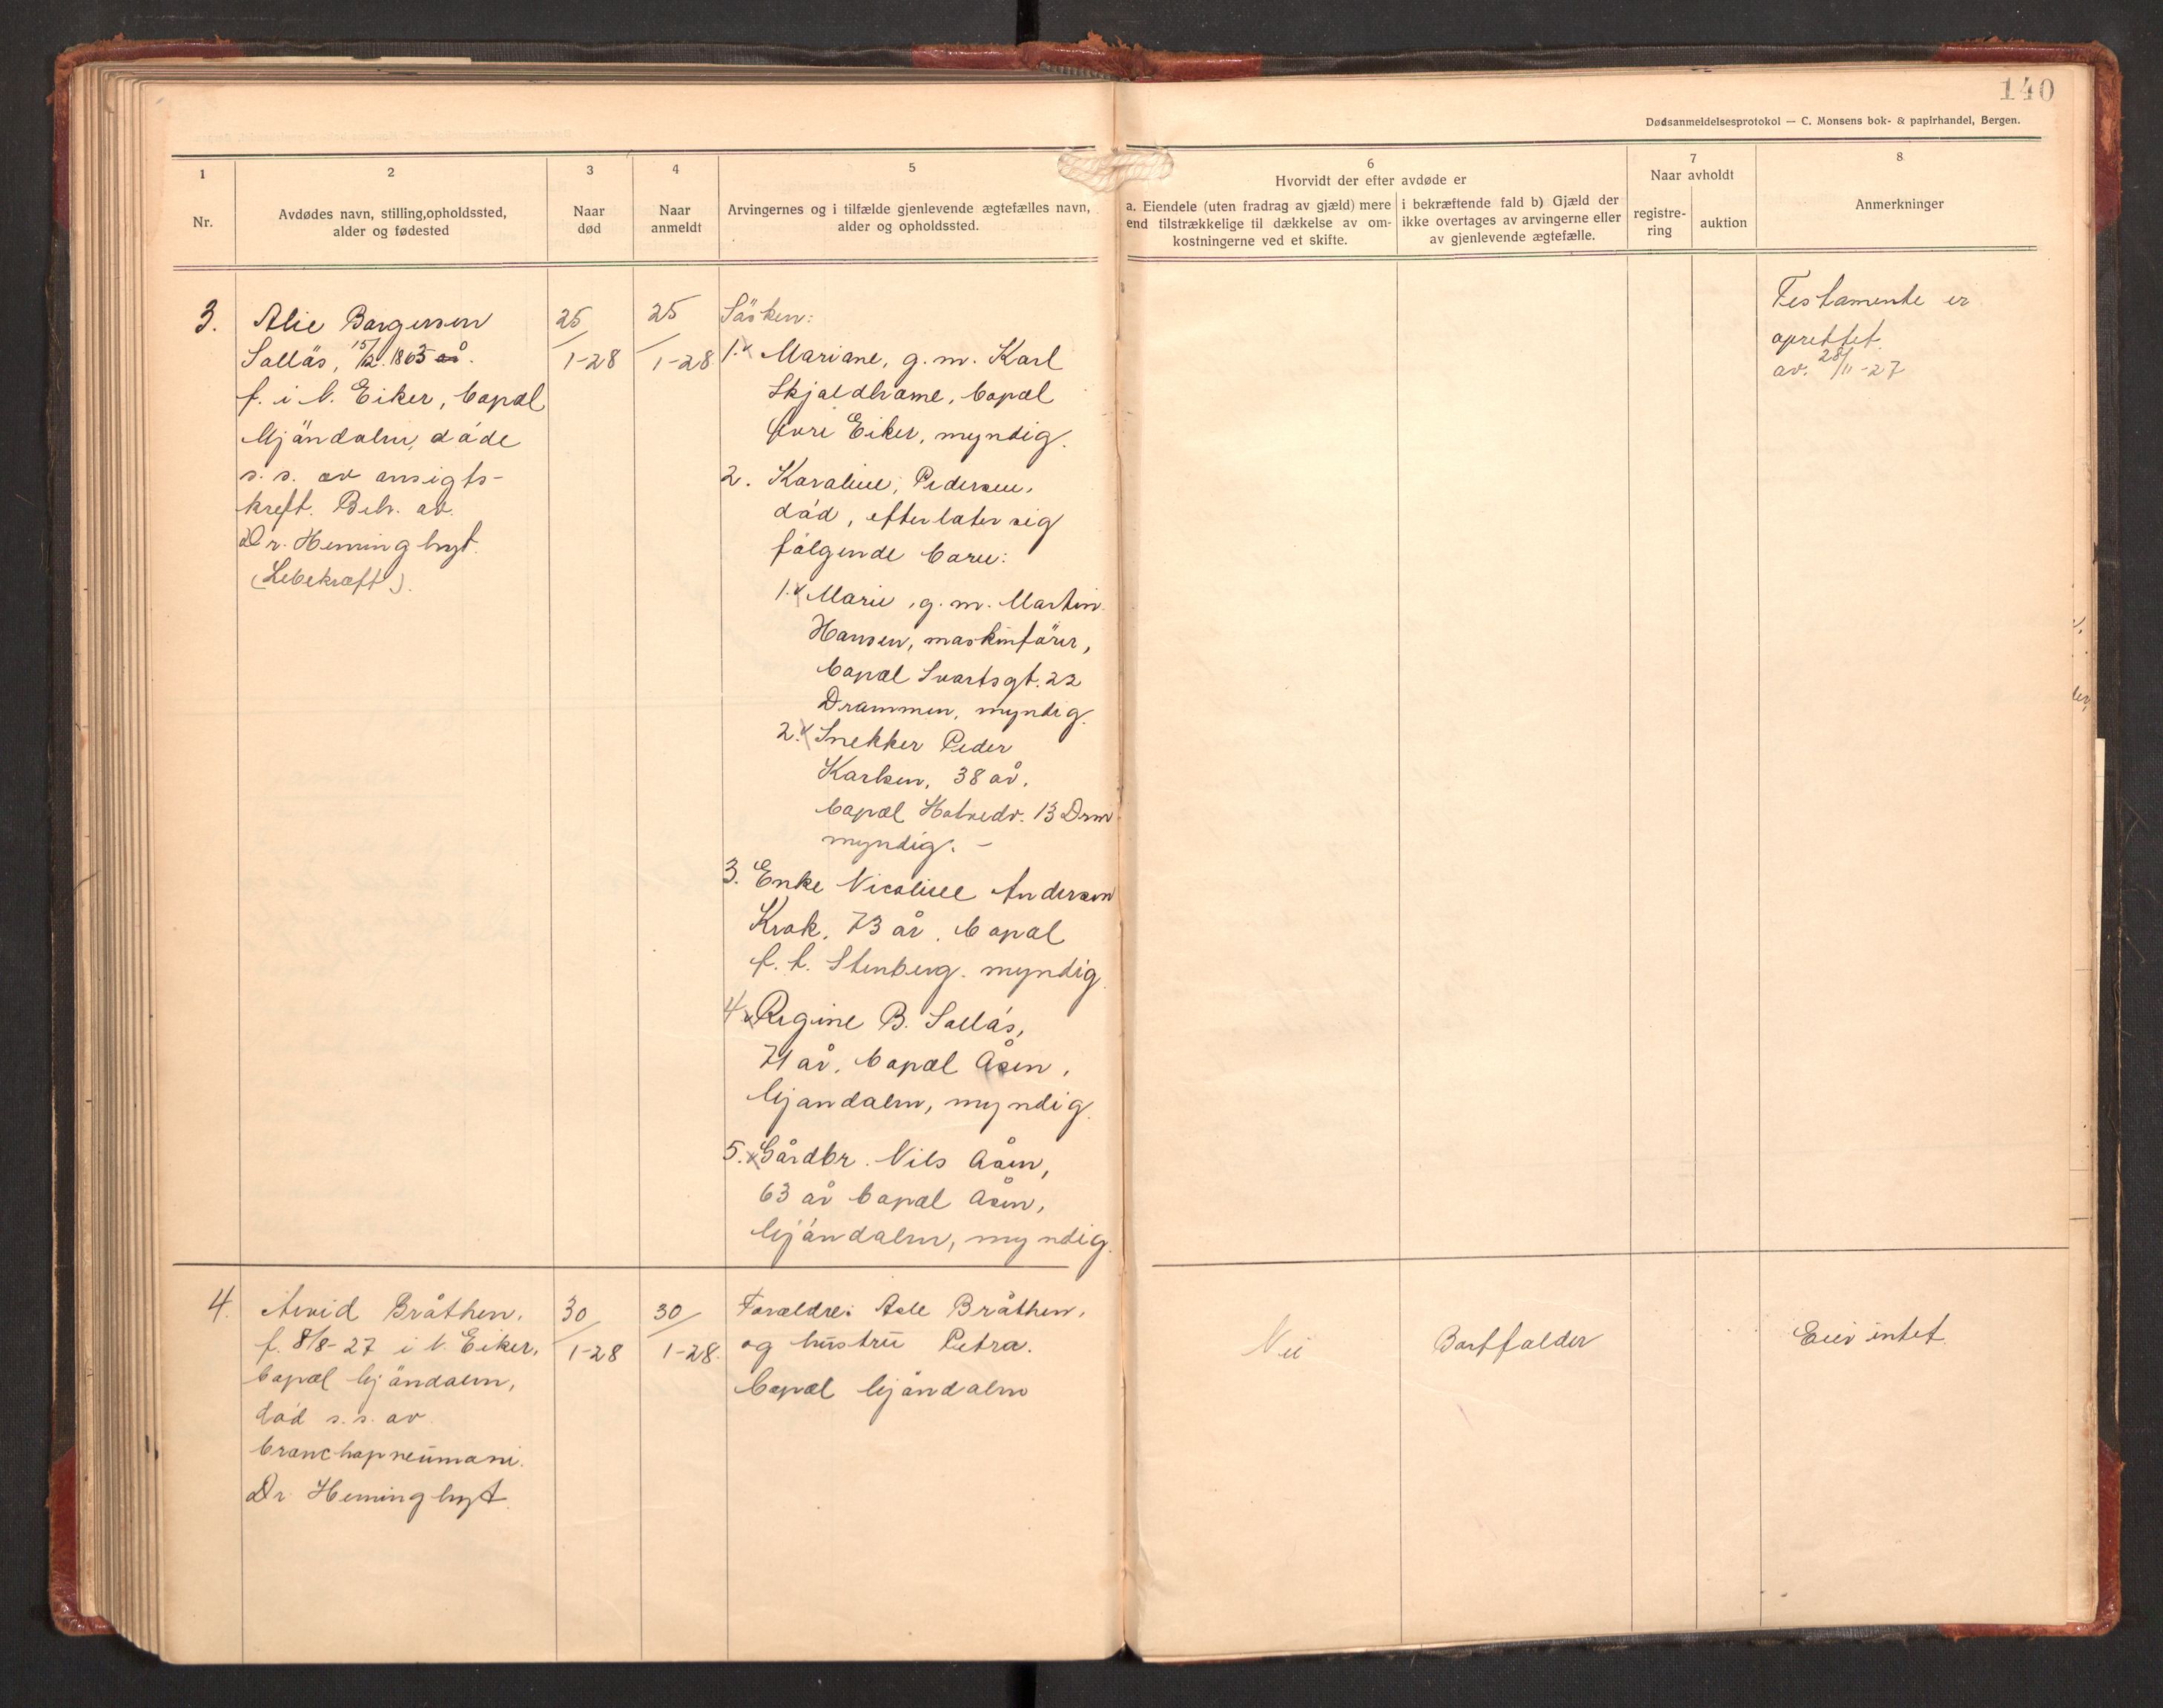 140
Dødsanmeldelsesprotokol — C. Monsens bok- & papirhandel, Bergen.
1
Nr.
2
Avdødes navn, stilling, opholdssted,
alder og fødested
3
Naar
død
4
Naar
anmeldt
5
Arvingernes og i tilfælde gjenlevende ægtefælles navn,
alder og opholdssted.
6
Hvorvidt der efter avdøde er
a. Eiendele (uten fradrag av gjæld) mere
end tilstrækkelige til dækkelse av om-
kostningerne ved et skifte.
i bekræftende fald b) Gjæld der
ikke overtages av arvingerne eller
av gjenlevende ægtefælle.
7
Naar avholdt
registre-
ring
auktion
8
Anmerkninger
3.
Alie Borgersen
Solläs, 15/12. 1863
f. i N. Eiker, bopæl
Mjöndalen, döde
s. s. av ansigts-
kreft. Beh. av
Dr. Heminghyt.
(Lebekræft).
25/1-28
25/1-28
Søsken:
1. Mariane, g. m. Karl
Skjoldhame, bopæl
Øvre Eiker, myndig.
2. Karoline, Pedersen,
död, efterlater sig
fölgende barn:
1. Marie, g. m. Martin
Hansen, maskinförer,
bopæl Svartsgt. 22
Drammen, myndig.
2. Snekker Peder
Karlsen, 38 år,
bopæl Hotvedv. 13 Drm
myndig. -
3. Enke Nicoline Andersen
Krok, 73 år, bopæl
f. t. Stenberg. myndig
4. Regine B. Solläs,
71 år, bopæl Åsen,
Mjöndalen, myndig.
5. Gårdbr. Nils Åsen,
63 år bopæl Åsen,
Mjöndalen, myndig.
Testamente er
oprettet
av. 28/11-27
4.
Arvid Bråthen,
f. 8/8-27 i N. Eiker,
bopæl Mjöndalen,
död s. s. av
bronchopneumoni.
Dr Heminghyt.
30/1-28
30/1-28.
Forældre: Asle Bråthen,
og hustru Petra.
bopæl Mjöndalen
Nei
Bortfalder
Eier intet.